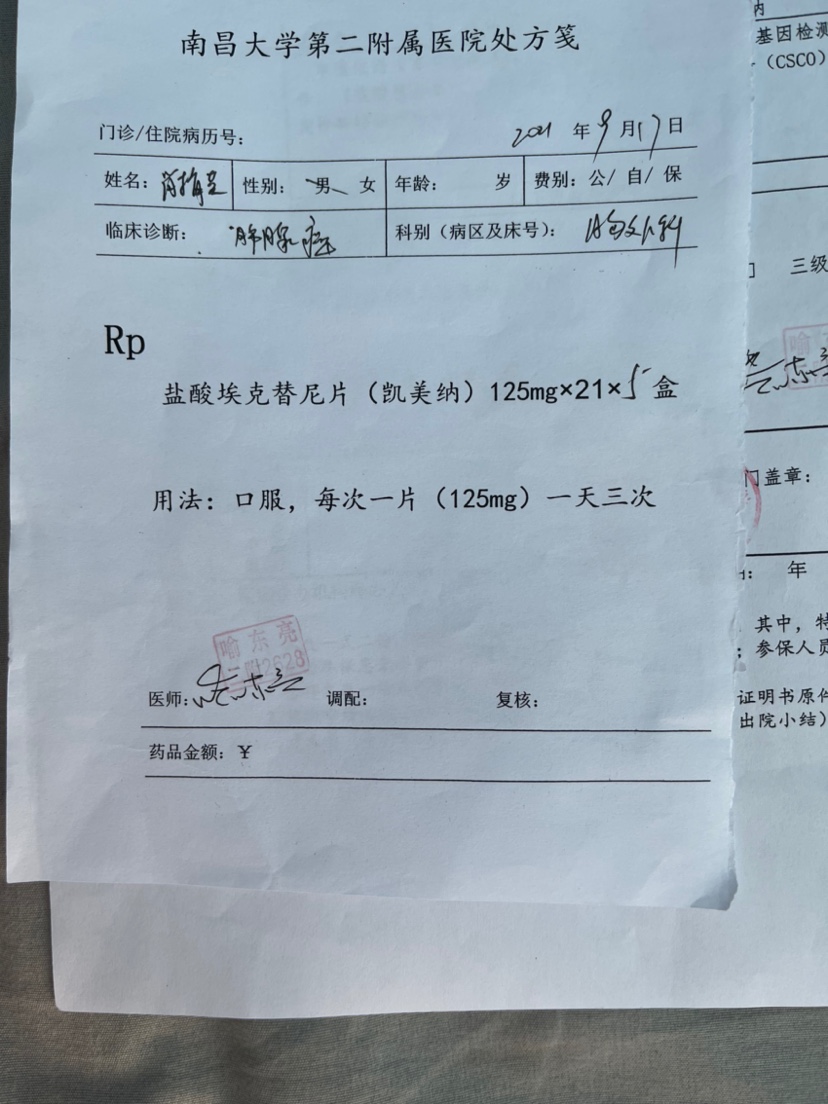 南昌大学第二附属医院处方笺
门诊/住院病历号: 2021 年 9 月 17 日
姓名: 性别: 男 女 年龄: 岁 费别: 公/ 自/ 保
临床诊断: 肺腺癌 科别 (病区及床号): 胸外科
Rp
盐酸埃克替尼片 (凯美纳) 125mg×21×5 盒
用法: 口服, 每次一片 (125mg) 一天三次
喻东亮
二附2628
医师: 喻东亮 调配: 复核:
药品金额: ¥
内
基因检测
(CSCO)
三级
喻
门盖章:
年
其中, 特
参保人员
证明书原件
出院小结)